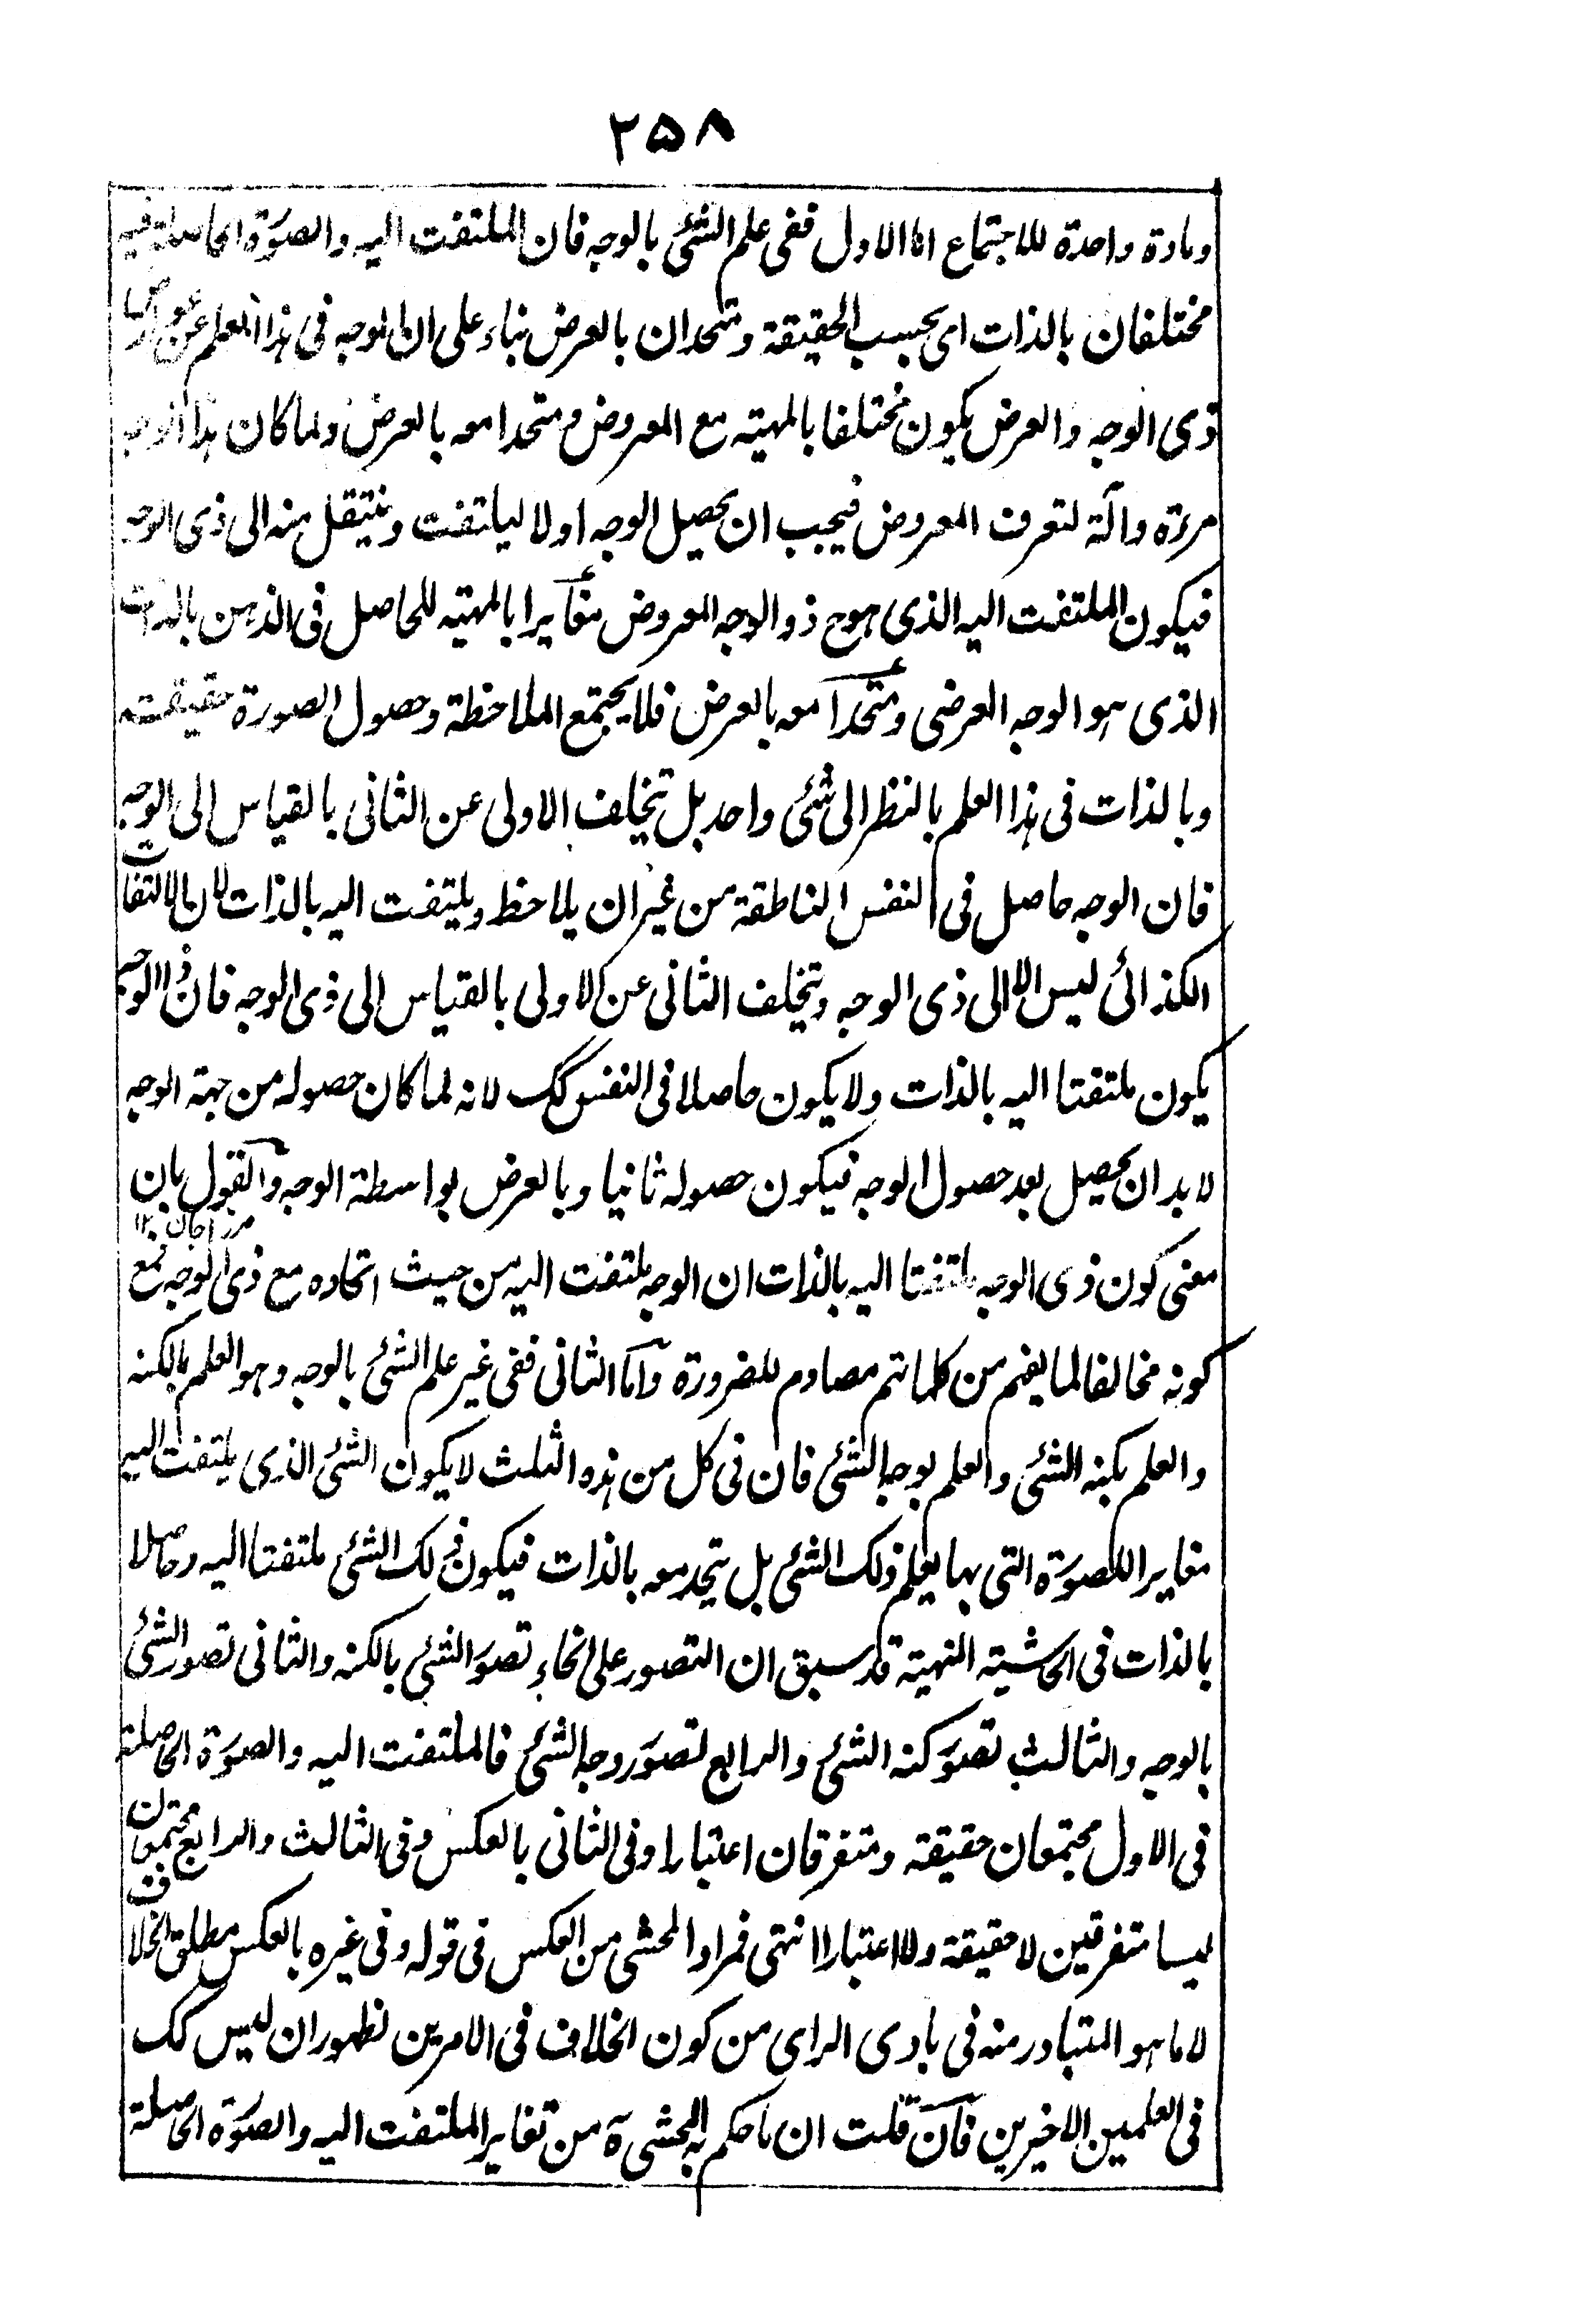 ٢٥٨
ومادة واحدة للاجتماع اما الاول ففى علم الشئ بالوجه فان الملتفت اليه والصورة الحاصلة فيه
مختلفان بالذات اى بحسب الحقيقة ومتحدان بالعرض بناء على ان الوجه فى هذا العلم من عوارض
ذى الوجه والعرض يكون مختلفا بالمهية مع المعروض ومتحدا معه بالعرض ولما كان هذا الوجه
مرءة وآلة لتعرف المعروض فيجب ان يحصل الوجه اولا ليلتفت وينتقل منه الى ذى الوجه
فيكون الملتفت اليه الذى هو ح ذو الوجه المعروض مغايرا بالمهية للحاصل فى الذهن بالذات
الذى هو الوجه العرضى ومتحدا معه بالعرض فلا يجتمع الملاحظة وحصول الصورة حقيقة
وبالذات فى هذا العلم بالنظر الى شئ واحد بل تخلف الاولى عن الثانى بالقياس الى الوجه
فان الوجه حاصل فى النفس الناطقة من غير ان يلاحظ ويلتفت اليه بالذات لان الالتفات
الكذائى ليس الا الى ذى الوجه وتخلف الثانى عن الاولى بالقياس الى ذى الوجه فان ذا الوجه
يكون ملتفتا اليه بالذات ولا يكون حاصلا فى النفس كك لانه لما كان حصوله من جهة الوجه
لا بد ان يحصل بعد حصول الوجه فيكون حصوله ثانيا وبالعرض بواسطة الوجه والقول بان
مرزا جان ١٢
معنى كون ذى الوجه ملتفتا اليه بالذات ان الوجه ملتفت اليه من حيث اتحاده مع ذى الوجه فمع
كونه مخالفا لما يفهم من كلماتهم مصادم للضرورة واما الثانى ففى غير علم الشئ بالوجه وهو العلم بالكنه
والعلم بكنه الشئ والعلم بوجه الشئ فان فى كل من هذه الثلث لا يكون الشئ الذى يلتفت اليه
مغايرا للصورة التى بها يعلم ذلك الشئ بل يتحد معه بالذات فيكون ذلك الشئ ملتفتا اليه وحاصلا
بالذات فى الحاشية المنهية قد سبق ان التصور على انحاء تصور الشئ بالكنه والثانى تصور الشئ
بالوجه والثالث تصور كنه الشئ والرابع تصور وجه الشئ فالملتفت اليه والصورة الحاصلة
فى الاول مجتمعان حقيقة ومتفرقان اعتبارا وفى الثانى بالعكس وفى الثالث والرابع مجتمعان
ليسا متفرقين لا حقيقة ولا اعتبارا انتهى فمراد المحشى من العكس فى قوله وفى غيره بالعكس مطلق الخلاف
لا ما هو المتبادر منه فى بادى الراى من كون الخلاف فى الامرين لظهور ان ليس كك
فى العلمين الاخيرين فان قلت ان ما حكم به المحشى ره من تغاير الملتفت اليه والصورة الحاصلة